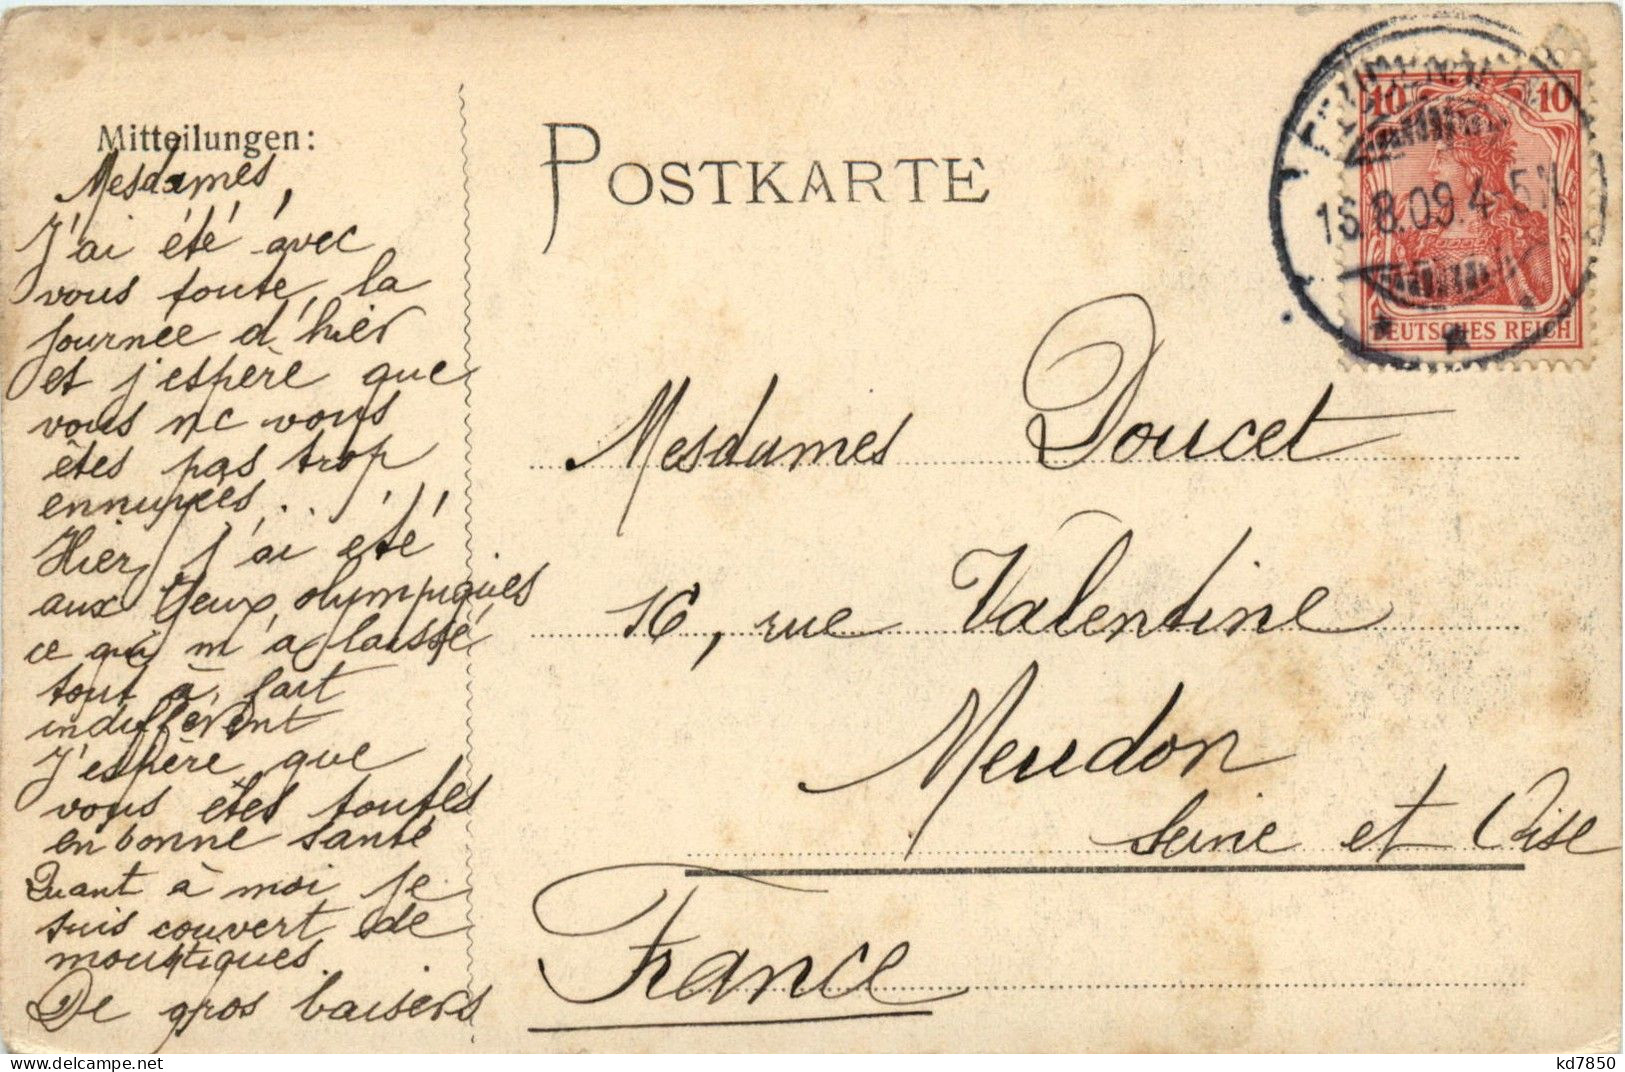 Mitteilungen:
Mesdames,
J'ai été avec
vous toute la
journée d'hier
et j'espère que
vous ne vous
êtes pas trop
ennuyées...
Hier, j'ai été
aux Jeux olympiques
ce qui m'a laissé
tout à fait
indifférent
J'espère que
vous êtes toutes
en bonne santé
Quant à moi je
suis couvert de
moustiques.
De gros baisers
POSTKARTE
10 10
16.8.09.4-5N
DEUTSCHES REICH
Mesdames Doucet
16, rue Valentine
Meudon
Seine et Oise
France
kd7850
delcampe.net